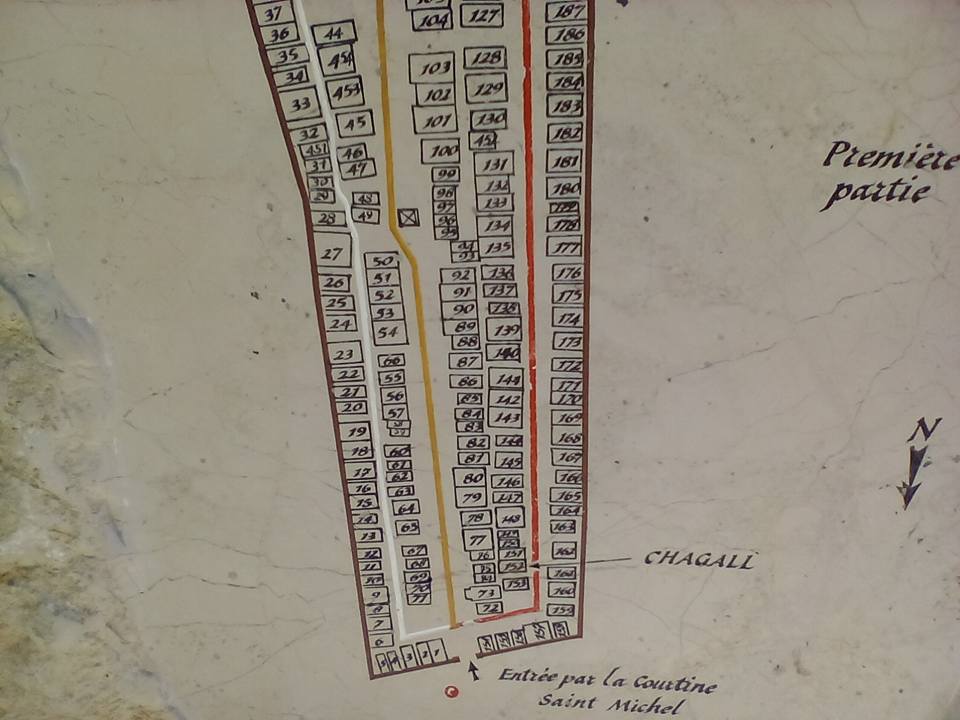 37
36
35
34
33
32
451
31
30
29
28
27
26
25
24
23
22
21
20
19
18
17
16
15
14
13
12
11
10
9
8
7
6
44
453
45
46
47
48
49
50
51
52
53
54
66
55
56
57
60
61
62
63
64
65
67
68
69
70
71
104
103
102
101
100
99
98
97
96
95
94
93
92
91
90
89
88
87
86
85
84
83
82
81
80
79
78
77
76
73
72
127
128
129
130
131
132
133
134
135
136
137
138
139
140
142
143
145
146
147
148
151
152
153
187
186
185
184
183
182
181
180
178
177
176
175
174
173
172
171
170
169
168
167
166
165
164
163
162
160
159
5 4 3 2 1
Première
partie
N
CHAGALL
Entrée par la Courtine
Saint Michel